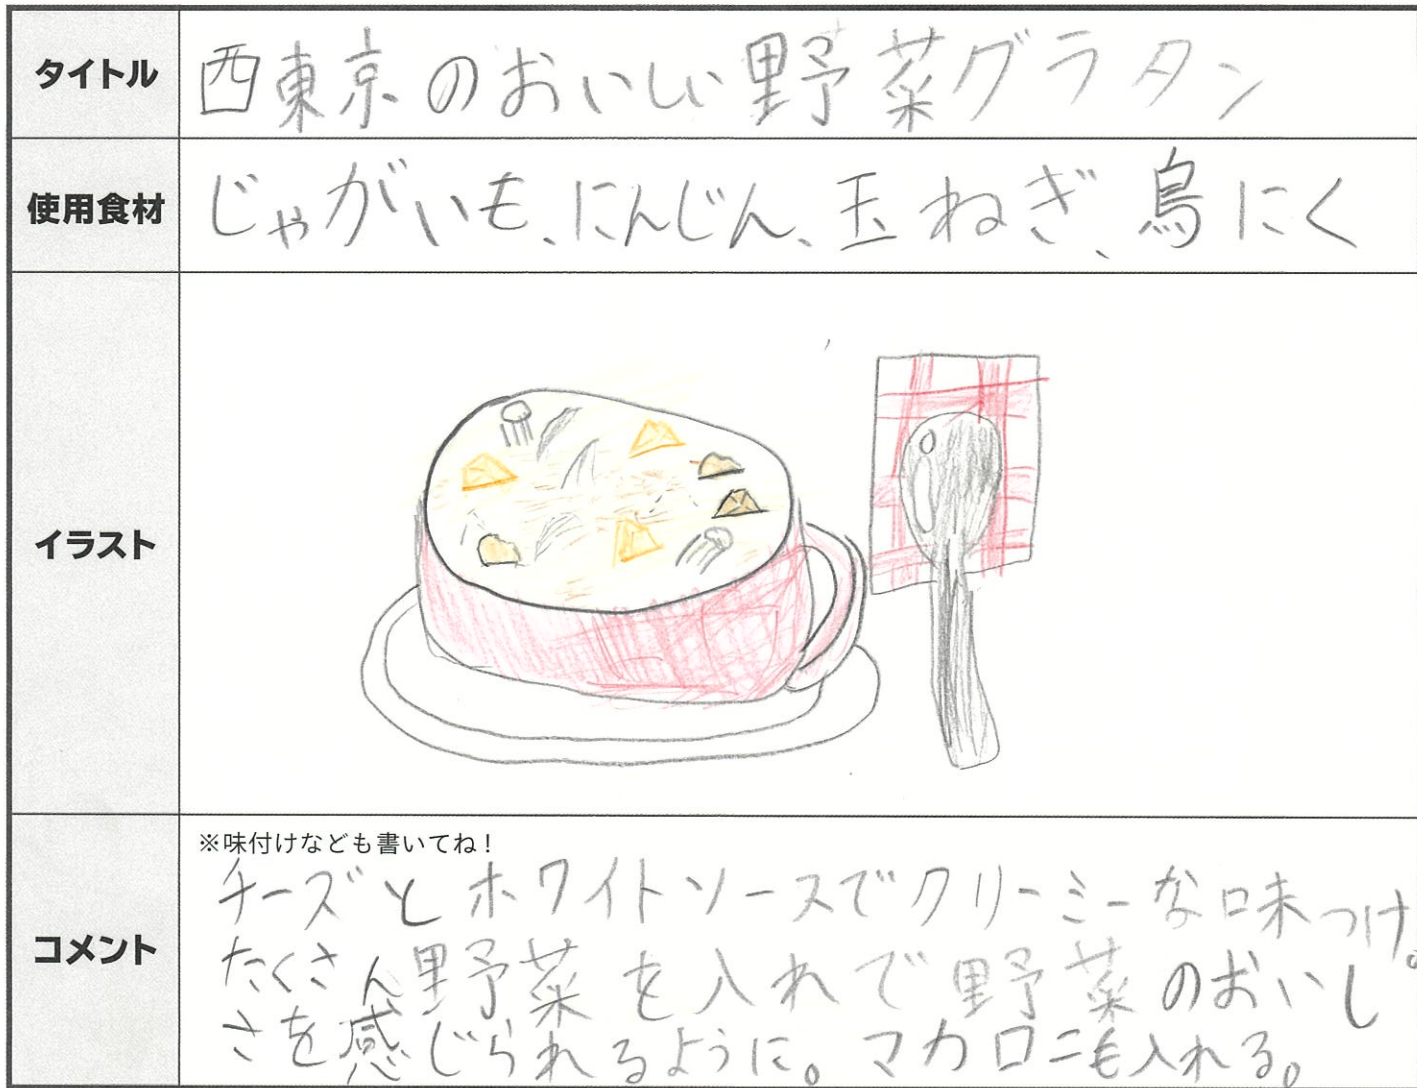 タイトル
西東京のおいしい野菜グラタン
使用食材
じゃがいも、にんじん、玉ねぎ、鳥にく
イラスト
コメント
※味付けなども書いてね!
チーズとホワイトソースでクリーミーな味つけ。
たくさん野菜を入れで野菜のおいし
さを感じられるように。マカロニも入れる。